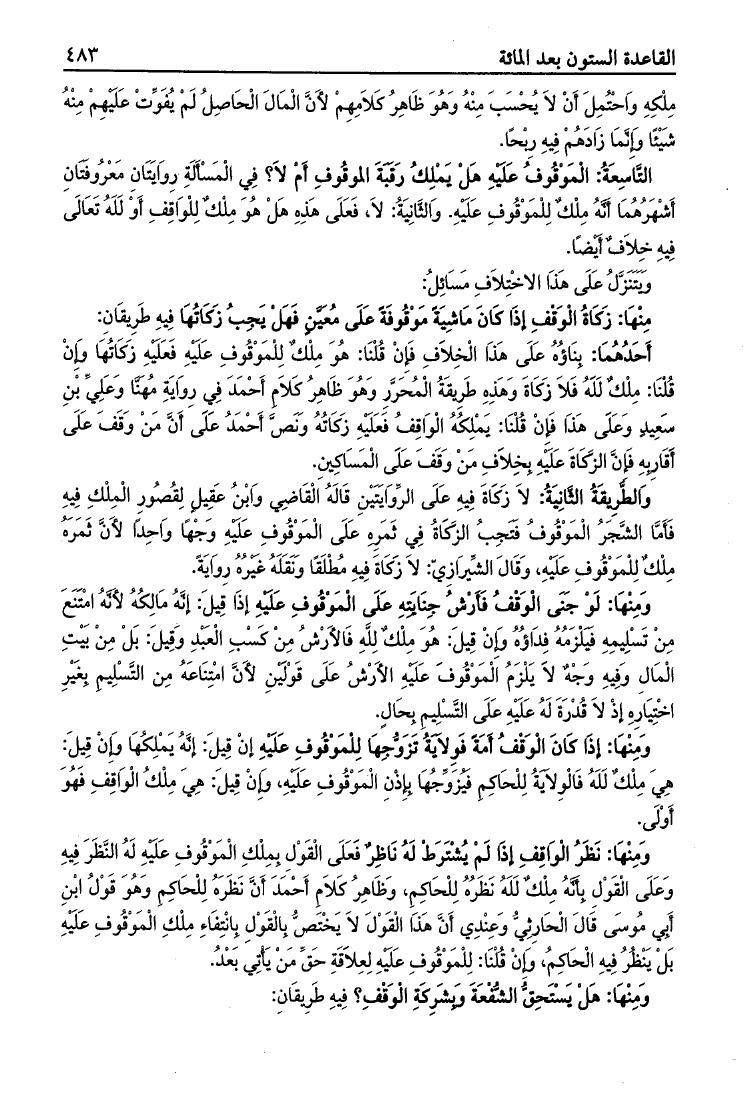 القاعدة الستون بعد المائة ٤٨٣
مِلْكِهِ وَاحْتُمِلَ أَنْ لاَ يُحْسَبَ مِنْهُ وَهُوَ ظَاهِرُ كَلاَمِهِمْ لأَنَّ المَالَ الْحَاصِلَ لَمْ يُفَوِّتْ عَلَيْهِمْ مِنْهُ
شَيْئًا وَإِنَّمَا زَادَهُمْ فِيهِ رِبْحًا.
التَّاسِعَةُ: الْمَوْقُوفُ عَلَيْهِ هَلْ يَمْلِكُ رَقَبَةَ الموقُوفِ أَمْ لاَ؟ فِي الْمَسْأَلَةِ رِوَايَتَانِ مَعْرُوفَتَانِ
أَشْهَرُهُمَا أَنَّهُ مِلْكٌ لِلْمَوْقُوفِ عَلَيْهِ. وَالثَّانِيَةُ: لاَ، فَعَلَى هَذِهِ هَلْ هُوَ مِلْكٌ لِلْوَاقِفِ أَوْ للهِ تَعَالَى
فِيهِ خِلاَفٌ أَيْضًا.
وَيَتَنَزَّلُ عَلَى هَذَا الاخْتِلاَفِ مَسَائِلُ:
مِنْهَا: زَكَاةُ الْوَقْفِ إِذَا كَانَ مَاشِيَةً مَوْقُوفَةً عَلَى مُعَيَّنٍ فَهَلْ يَجِبُ زَكَاتُهَا فِيهِ طَرِيقَانِ:
أَحَدُهُمَا: بِنَاؤُهُ عَلَى هَذَا الْخِلاَفِ فَإِنْ قُلْنَا: هُوَ مِلْكٌ لِلْمَوْقُوفِ عَلَيْهِ فَعَلَيْهِ زَكَاتُهَا وَإِنْ
قُلْنَا: مِلْكٌ للهِ فَلاَ زَكَاةَ وَهَذِهِ طَرِيقَةُ الْمُحَرَّرِ وَهُوَ ظَاهِرُ كَلاَمِ أَحْمَدَ فِي رِوَايَةِ مُهَنَّا وَعَلِيِّ بْنِ
سَعِيدٍ وَعَلَى هَذَا فَإِنْ قُلْنَا: يَمْلِكُهُ الْوَاقِفُ فَعَلَيْهِ زَكَاتُهُ وَنَصَّ أَحْمَدُ عَلَى أَنَّ مَنْ وَقَفَ عَلَى
أَقَارِبِهِ فَإِنَّ الزَّكَاةَ عَلَيْهِ بِخِلاَفِ مَنْ وَقَفَ عَلَى الْمَسَاكِينِ.
وَالطَّرِيقَةُ الثَّانِيَةُ: لاَ زَكَاةَ فِيهِ عَلَى الرِّوَايَتَيْنِ قَالَهُ الْقَاضِي وَابْنُ عَقِيلٍ لِقُصُورِ الْمِلْكِ فِيهِ
فَأَمَّا الشَّجَرُ الْمَوْقُوفُ فَتَجِبُ الزَّكَاةُ فِي ثَمَرِهِ عَلَى الْمَوْقُوفِ عَلَيْهِ وَجْهًا وَاحِدًا لأَنَّ ثَمَرَهُ
مِلْكٌ لِلْمَوْقُوفِ عَلَيْهِ، وَقَالَ الشِّيرَازِيُّ: لاَ زَكَاةَ فِيهِ مُطْلَقًا وَنَقَلَهُ غَيْرُهُ رِوَايَةً.
وَمِنْهَا: لَوْ جَنَى الْوَقْفُ فَأَرْشُ جِنَايَتِهِ عَلَى الْمَوْقُوفِ عَلَيْهِ إِذَا قِيلَ: إِنَّهُ مَالِكُهُ لأَنَّهُ امْتَنَعَ
مِنْ تَسْلِيمِهِ فَيَلْزَمُهُ فِدَاؤُهُ وَإِنْ قِيلَ: هُوَ مِلْكٌ للهِ فَالأَرْشُ مِنْ كَسْبِ الْعَبْدِ وَقِيلَ: بَلْ مِنْ بَيْتِ
الْمَالِ وَفِيهِ وَجْهٌ لاَ يَلْزَمُ الْمَوْقُوفَ عَلَيْهِ الأَرْشُ عَلَى قَوْلَيْنِ لأَنَّ امْتِنَاعَهُ مِنِ التَّسْلِيمِ بِغَيْرِ
اخْتِيَارِهِ إِذْ لاَ قُدْرَةَ لَهُ عَلَيْهِ عَلَى التَّسْلِيمِ بِحَالٍ.
وَمِنْهَا: إِذَا كَانَ الْوَقْفُ أَمَةً فَوِلاَيَةُ تَزَوُّجِهَا لِلْمَوْقُوفِ عَلَيْهِ إِنْ قِيلَ: إِنَّهُ يَمْلِكُهَا وَإِنْ قِيلَ:
هِيَ مِلْكٌ للهِ فَالْوِلاَيَةُ لِلْحَاكِمِ فَيُزَوِّجُهَا بِإِذْنِ الْمَوْقُوفِ عَلَيْهِ، وَإِنْ قِيلَ: هِيَ مِلْكُ الْوَاقِفِ فَهُوَ
أَوْلَى.
وَمِنْهَا: نَظَرُ الْوَاقِفِ إِذَا لَمْ يُشْتَرَطْ لَهُ نَاظِرٌ فَعَلَى الْقَوْلِ بِمِلْكِ الْمَوْقُوفِ عَلَيْهِ لَهُ النَّظَرُ فِيهِ
وَعَلَى الْقَوْلِ بِأَنَّهُ مِلْكٌ للهِ نَظَرُهُ لِلْحَاكِمِ، وَظَاهِرُ كَلاَمِ أَحْمَدَ أَنَّ نَظَرَهُ لِلْحَاكِمِ وَهُوَ قَوْلُ ابْنِ
أَبِي مُوسَى قَالَ الْحَارِثِيُّ وَعِنْدِي أَنَّ هَذَا الْقَوْلَ لاَ يَخْتَصُّ بِالْقَوْلِ بِانْتِفَاءِ مِلْكِ الْمَوْقُوفِ عَلَيْهِ
بَلْ يَنْظُرُ فِيهِ الْحَاكِمُ، وَإِنْ قُلْنَا: لِلْمَوْقُوفِ عَلَيْهِ لِعِلاَقَةِ حَقِّ مَنْ يَأْتِي بَعْدُ.
وَمِنْهَا: هَلْ يَسْتَحِقُّ الشُّفْعَةَ وَبِشَرِكَةِ الْوَقْفِ؟ فِيهِ طَرِيقَانِ: